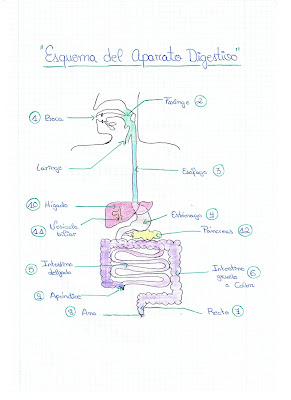 "Esquema del Aparato Digestivo"
Faringe 2
1 Boca
Laringe
Esófago 3
10 Hígado
Estómago 4
11 Vesícula
biliar
Páncreas 12
5 Intestino
delgado
Intestino 6
grueso
o Colon
9 Apéndice
8 Ano
Recto 7